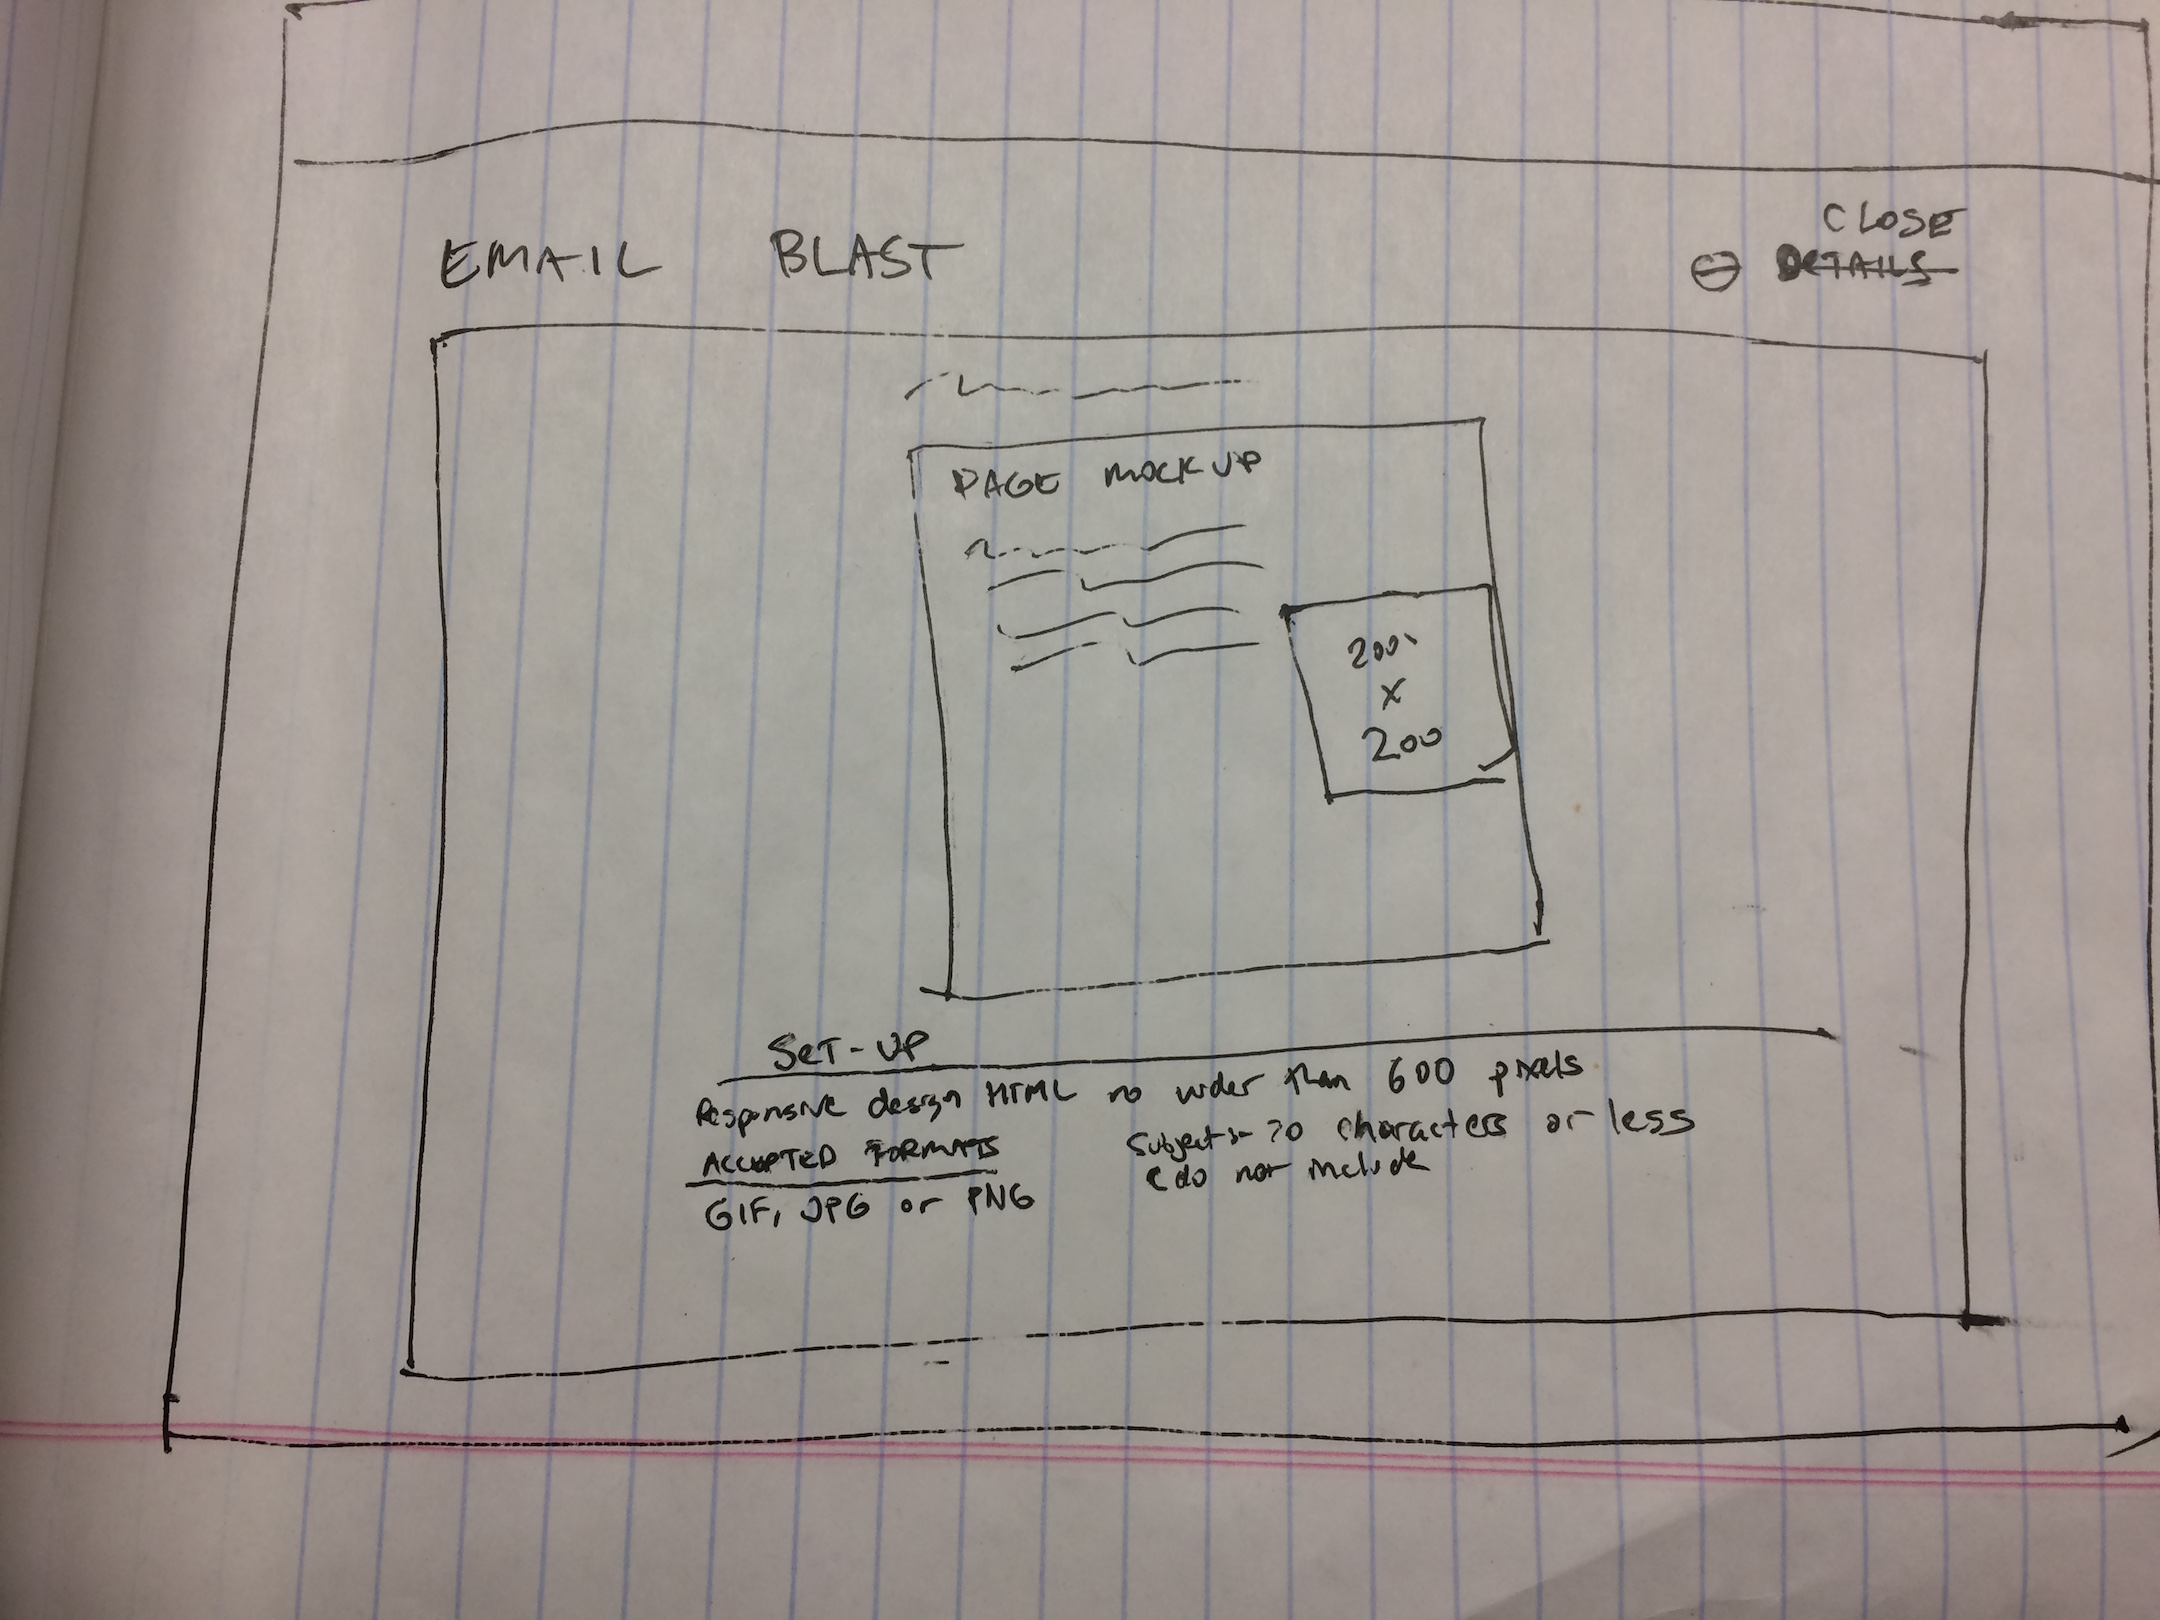 EMAIL BLAST
CLOSE
DETAILS
PAGE MOCKUP
200
X
200
SET-UP
Responsive design HTML no wider than 600 pixels
ACCEPTED FORMATS
GIF, JPG or PNG
Subject :- characters or less
do not include